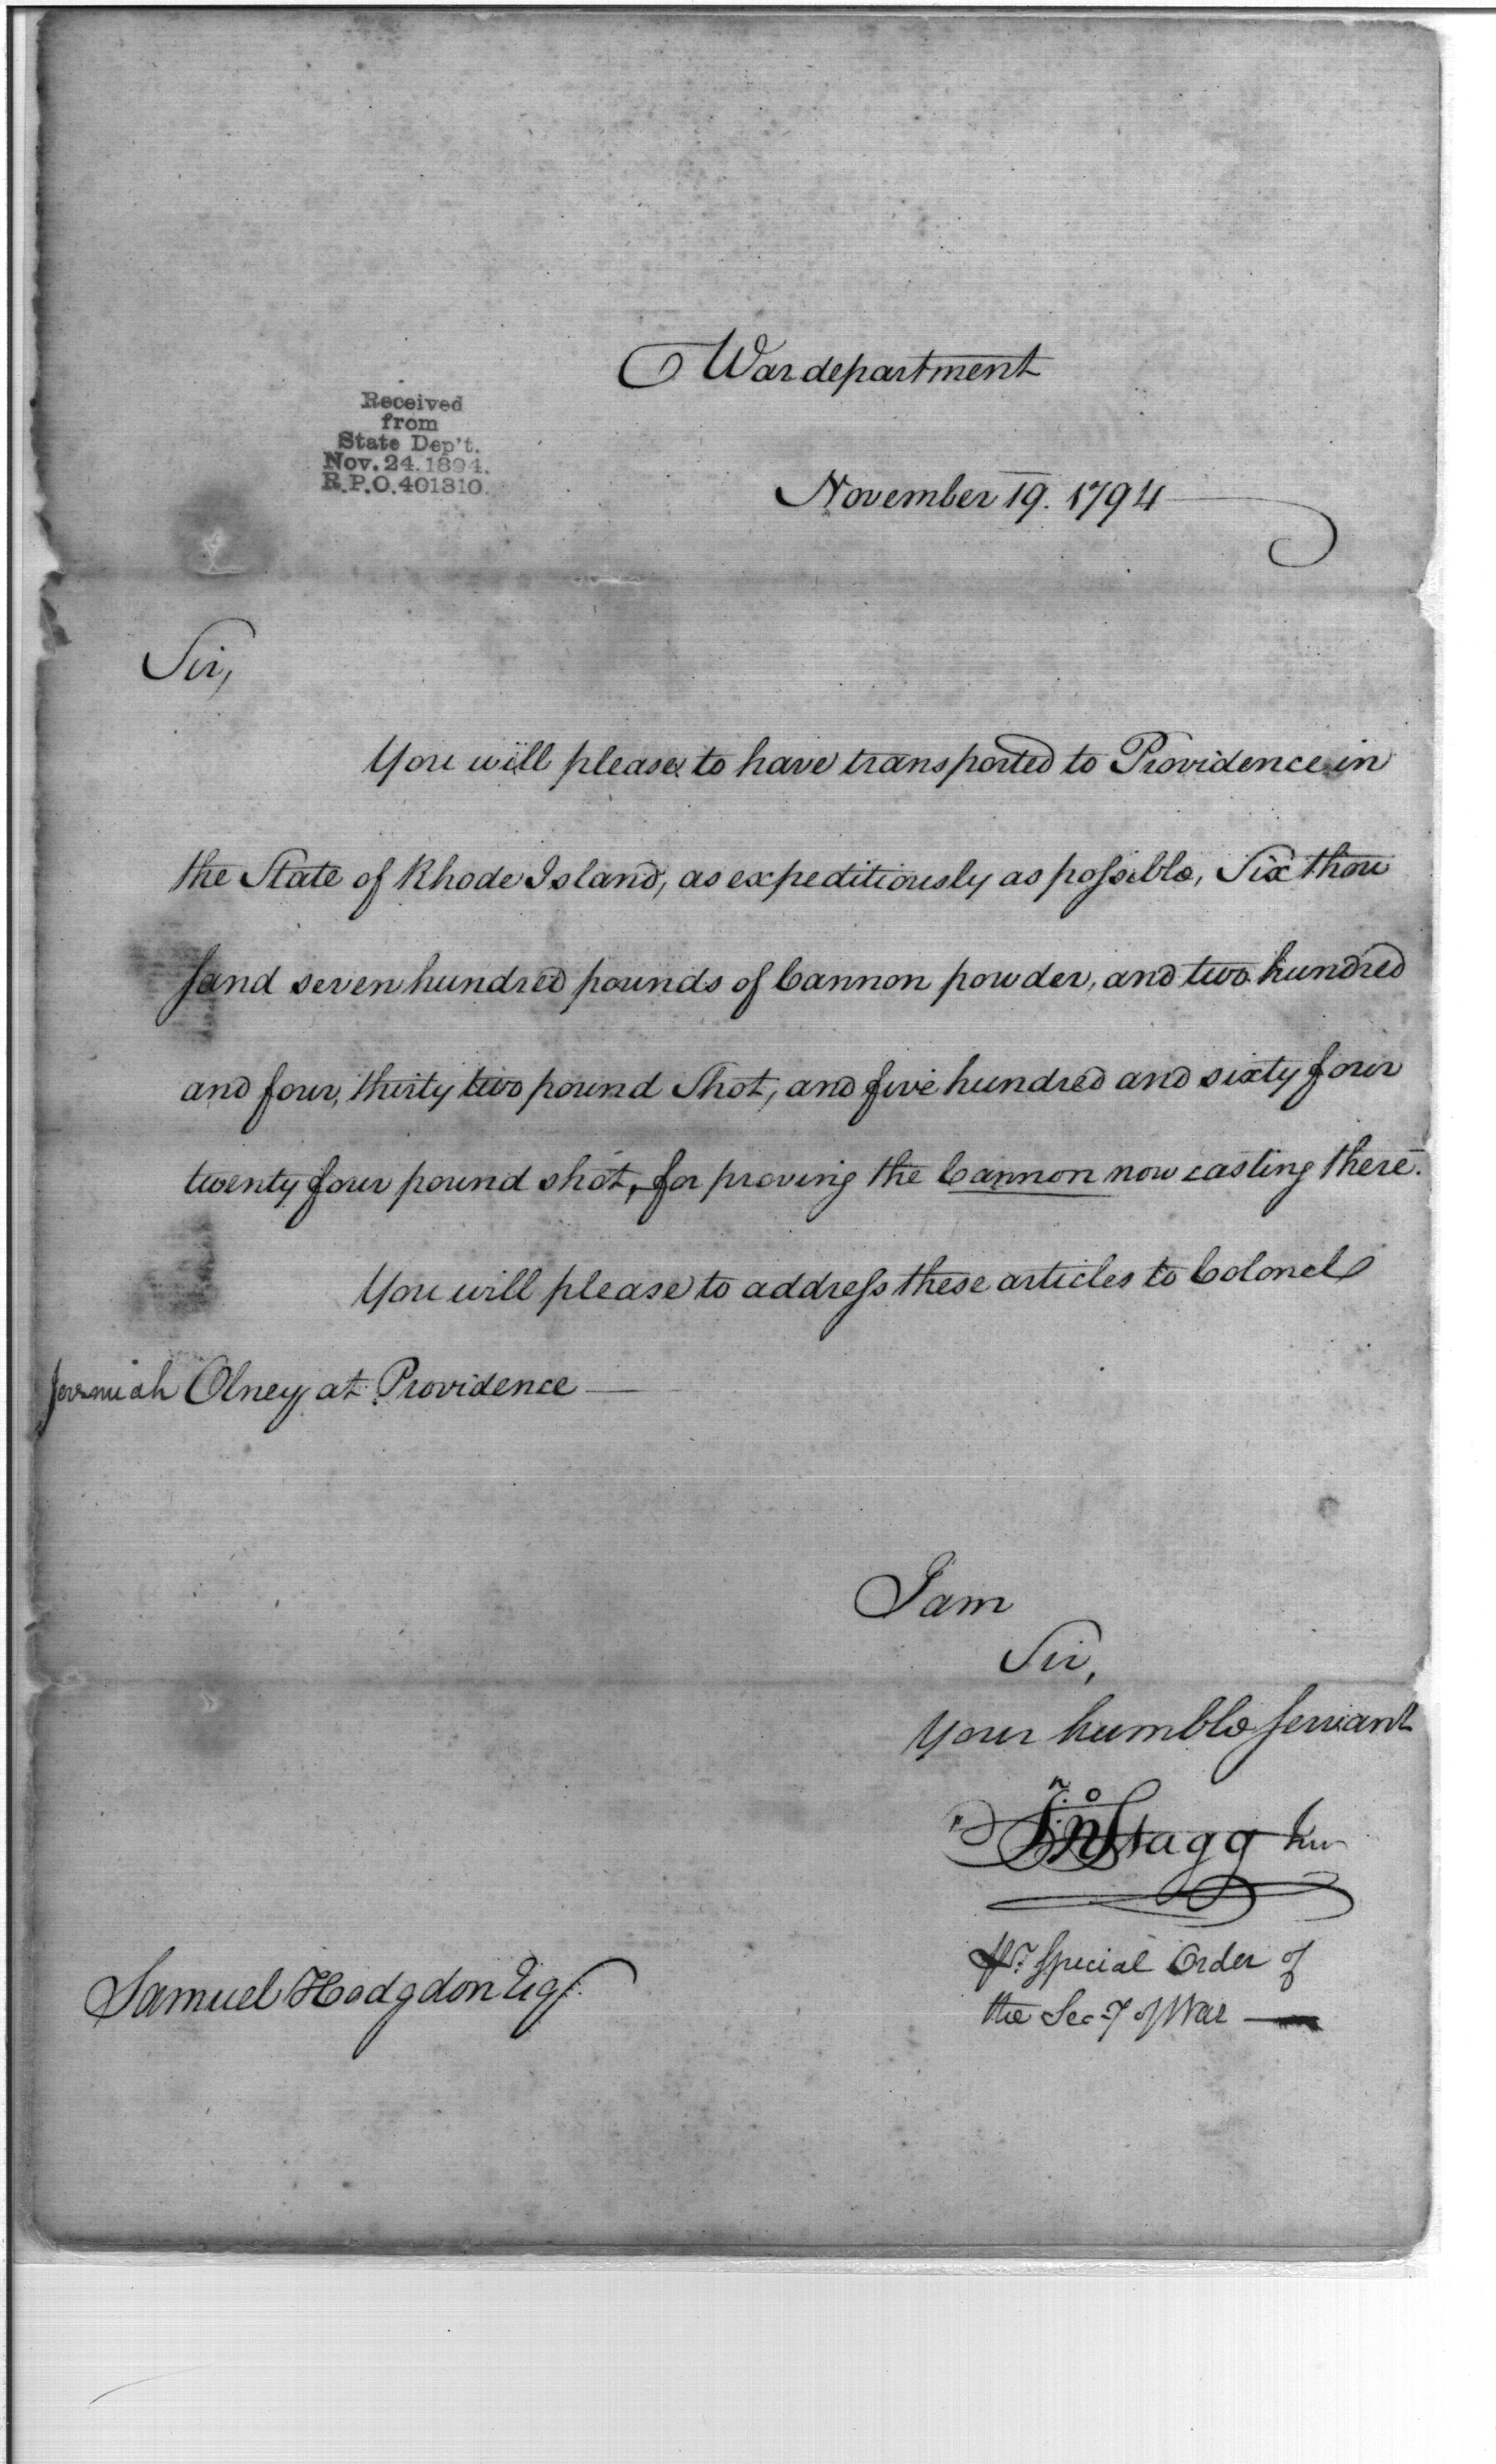 War department
Received
from
State Dep't.
Nov. 24. 1894.
R.P.O. 401310.
November 19. 1794
Sir,
You will please to have transported to Providence in
the State of Rhode Island, as expeditiously as possible, Six thou
sand seven hundred pounds of Cannon powder, and two hundred
and four, thirty two pound Shot, and five hundred and sixty four
twenty four pound shot, for proving the Cannon now casting there.
You will please to address these articles to Colonel
Jeremiah Olney at Providence —
I am
Sir,
Your humble servant
Jno Stagg Jun
Samuel Hodgdon Esq.
Pr. Special Order of
the Secy of War —